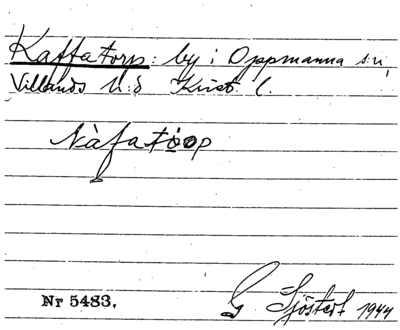 Kaffatorp: by i Oppmanna sn,
Villands h:d Krist l.
Nàfatorp
Nr 5483.
G Sjöstedt 1944